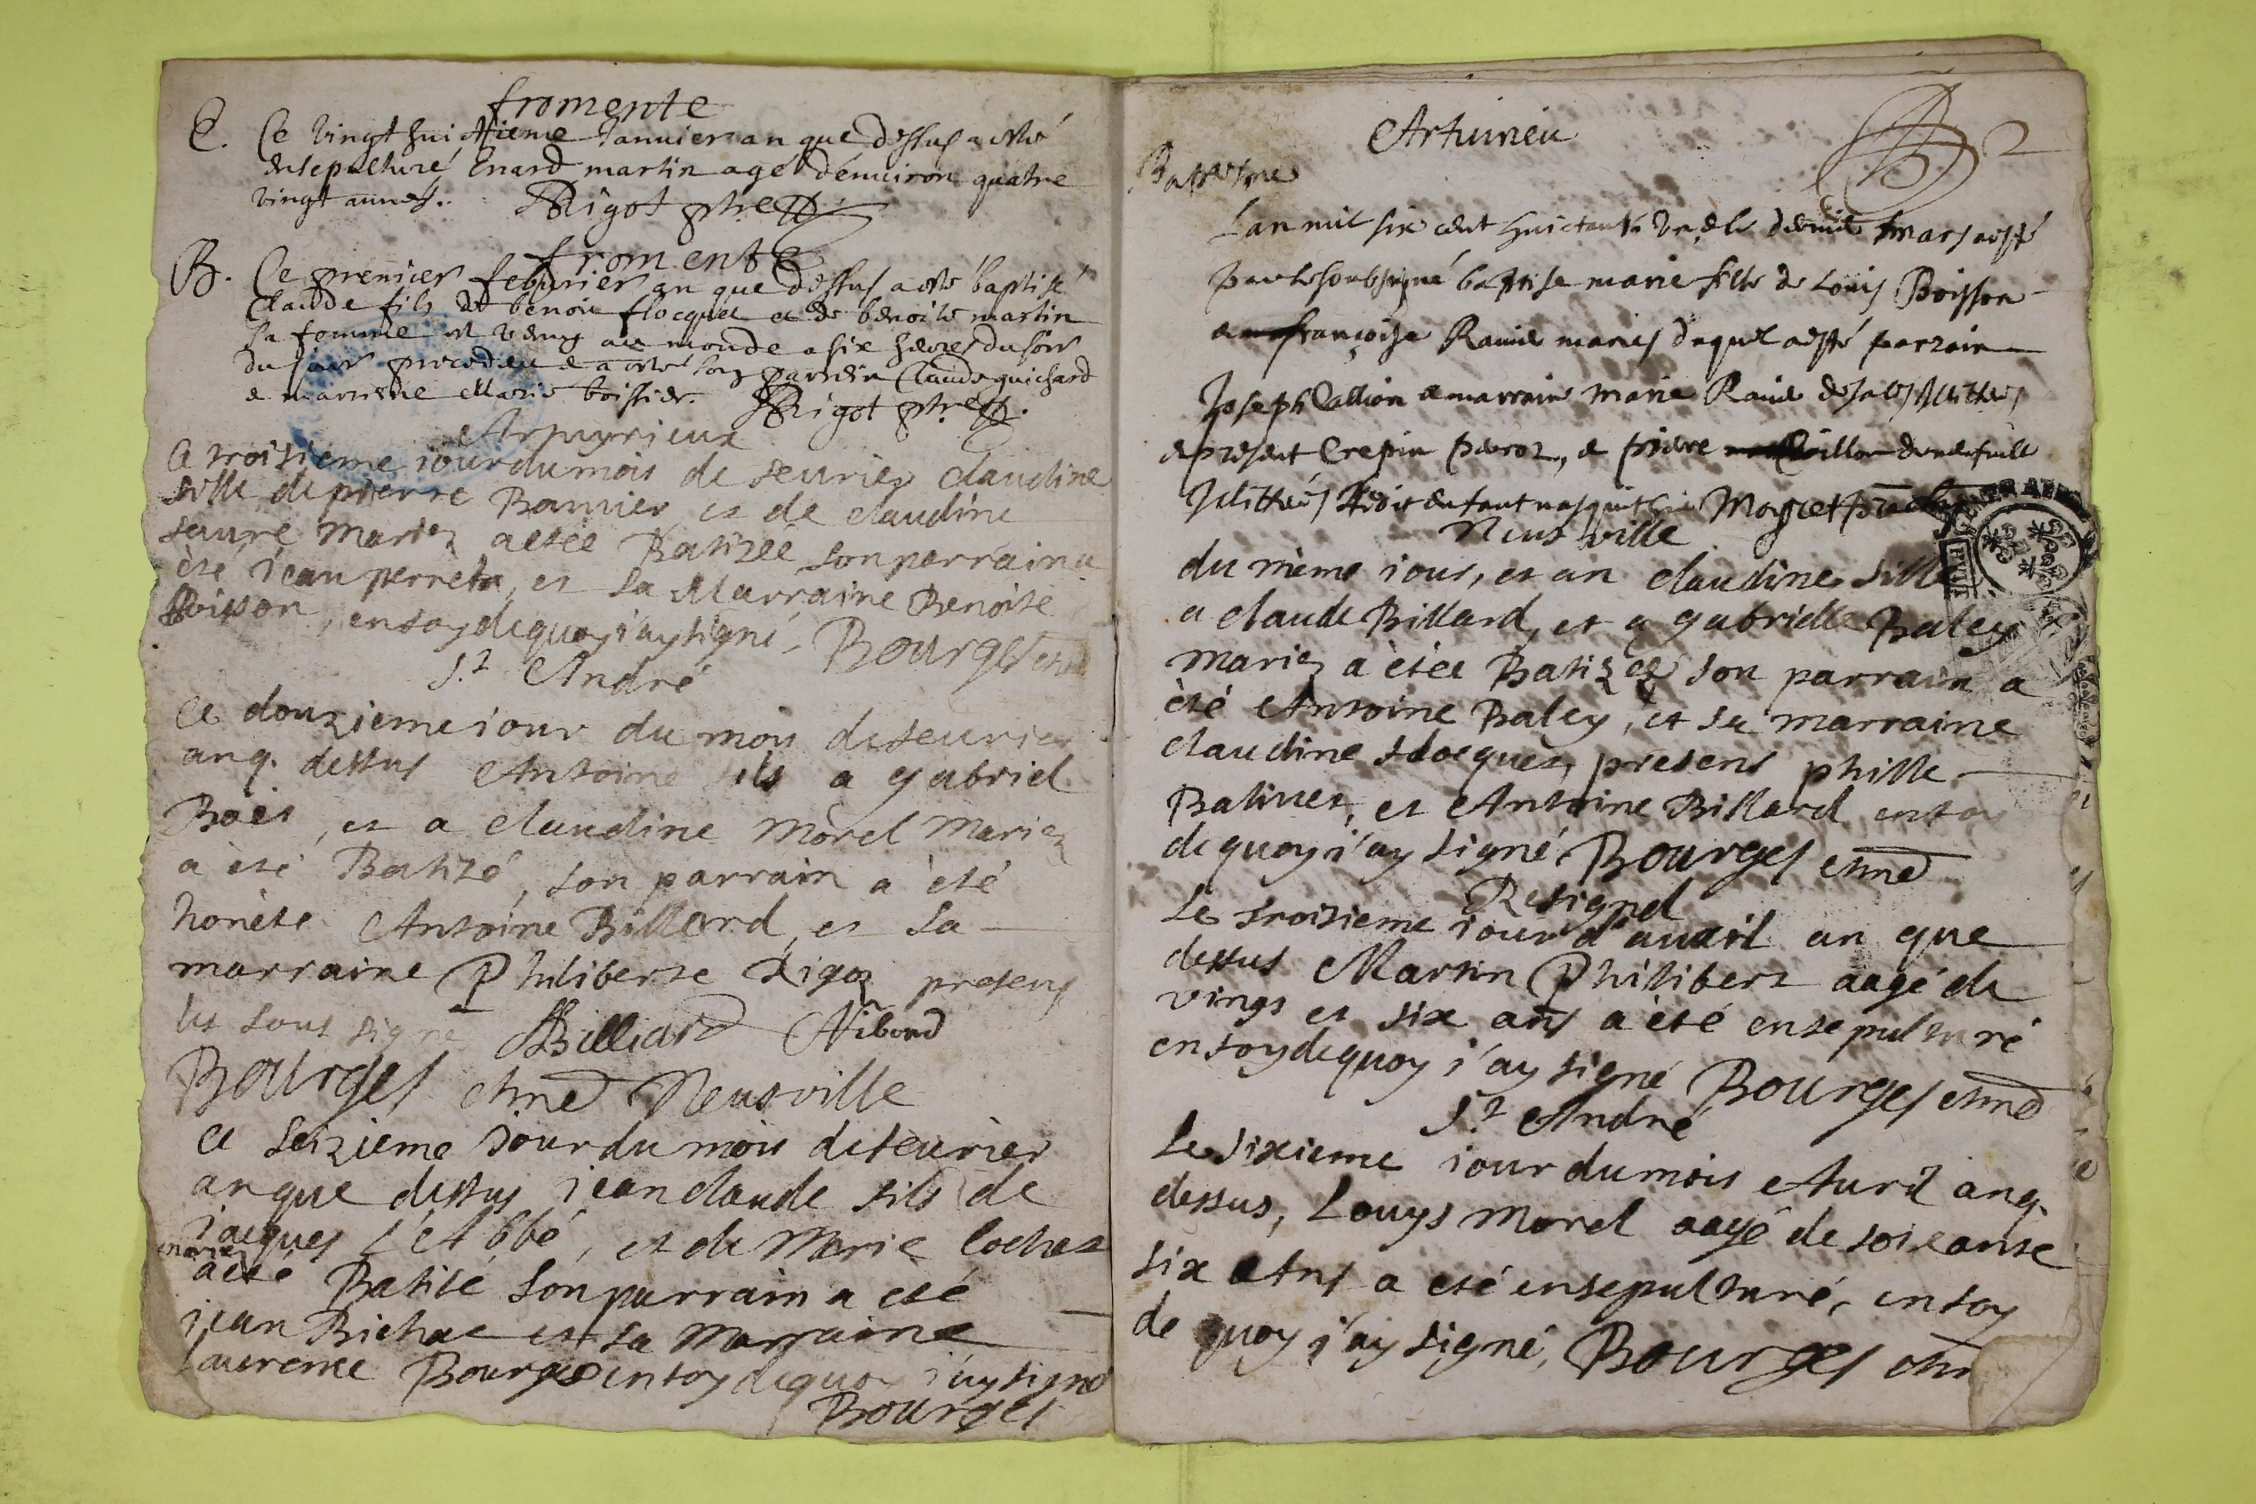 fromente
E. Ce vingt huictieme Januier an que dessus a esté
ensepulturé Enard martin agé d'enuiron quatre
vingt années. Rigot ptre
fromente
B. Ce premier feburier an que dessus a esté baptisé
Claude fils de benoit flocquet et de benoite martin
sa femme et venu au monde a six heures du soir
du jour precedent a esté son parrein Claude guichard
e marreine Marie boissier. Rigot ptre
Ce troisieme iour du mois de feurier claudine
fille de pierre Bannier et de claudine
feure Mariez a etée Batizée son parrain a
été ièan perret, et sa Marraine Benoite
Poisson, en foy dequoy i'ay signé. Bourges
St André
Ce douzieme iour du mois de feurier
anq. dessus Antoine fils a gabriel
et a claudine Mòrel Mariez
a été Batizé, son parrain a été
honète Antoine Billard, et sa
marraine Philiberte Rigoz presens
les sous signé Billiard Nibond
Bourges Neufville
Ce seizieme iour du mois de feurier
an que dessus iean claude fils de
iacques l'Abbé, et de Marie Cochet
mariez
a été Batisé son parrain a eté
iean Bichat et sa Marraine
laurence Bourge en foy dequoy i'ay signé
Bourges
2
Baptesme
L'an mil six cent huictante un & le dernier mars a esté
par le soubsigné baptise marie fille de Louis Poisson
e françoise Rauie mariés duquel a esté parrain
Joseph e marraine Marie Rauie
e present Crepin Perroz, e pierre
Neufville
du mème iour, et an claudine fille
a claude Billard, et a gabrielle Baley
Mariez a étée Batizée son parrain a
èté Antoine Baley, et sa marraine
claudine flocquet, presens phille
et Antoine Billard en foy
de quoy i'ay signé Bourges
Resignel
Le troisieme iour d'auril an que
dessus Martin Philibert aagé de
vingt et six ans a èté ensepulturé
en foy dequoy i'ay signé Bourges
St André
Le sixieme iour du mois Auril anq.
dessus, Louys Morel aagé de soixante
six Ans a eté ensepulturé, en foy
de quoy i'ay signé, Bourges